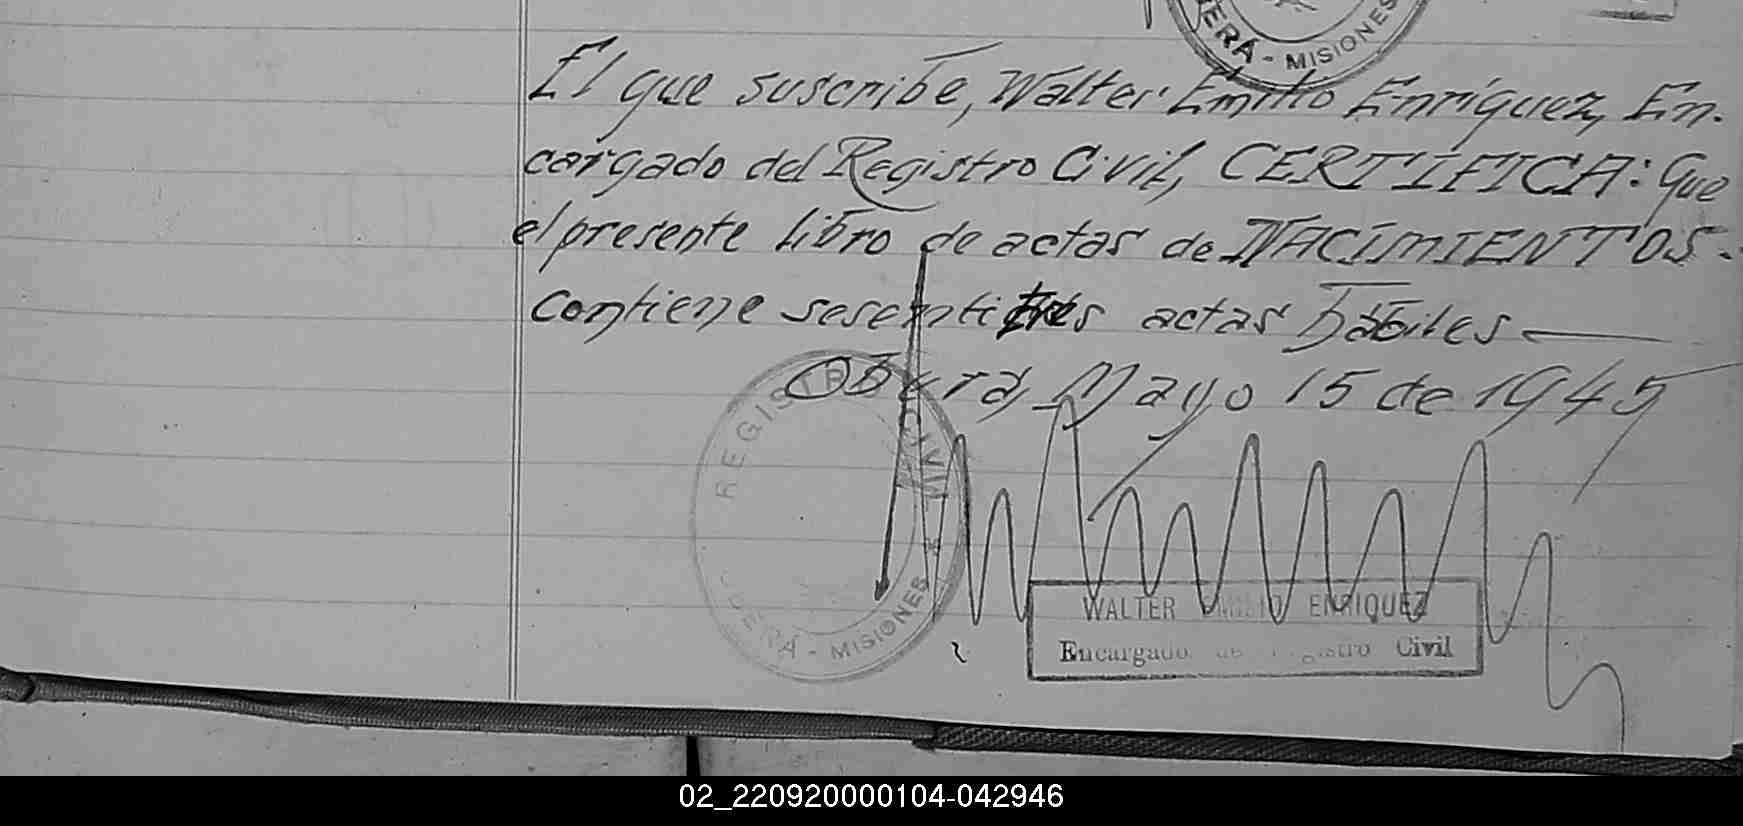 ERÁ - MISIONES
El que suscribe, Walter Emilio Enríquez, En-
cargado del Registro Civil, CERTIFICA: Que
el presente libro de actas de NACIMIENTOS.-
Contiene sesentitres actas hábiles
Oberá, Mayo 15 de 1945
REGISTR CIVIL
OBERÁ - MISIONES
WALTER EMILIO ENRIQUEZ
Encargado de Registro Civil
02_220920000104-042946